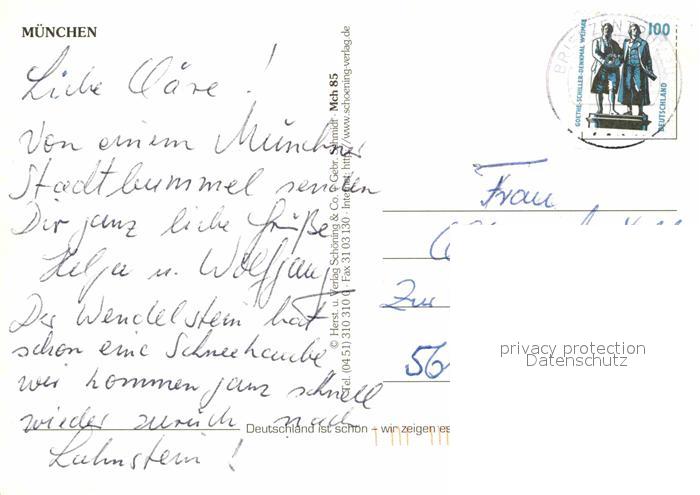 MÜNCHEN
Liebe Cläre!
Von einem Münchner
Stadtbummel senden
Dir ganz liebe Grüße
Helga u. Wolfgang
Der Wendelstein hat
schon eine Schneehaube
wir kommen ganz schnell
wieder zurück nach
Lahnstein!
© Herst. u. Verlag Schöning & Co. + Gebr. Schmidt · Mch 85
Tel. (04 51) 310 310 0 · Fax 31 03 130 · Internet: http://www.schoening-verlag.de
Deutschland ist schön – wir zeigen es
GOETHE-SCHILLER-DENKMAL WEIMAR
100
DEUTSCHLAND
BRIEFZENTRUM
Frau
Zur
56
privacy protection
Datenschutz